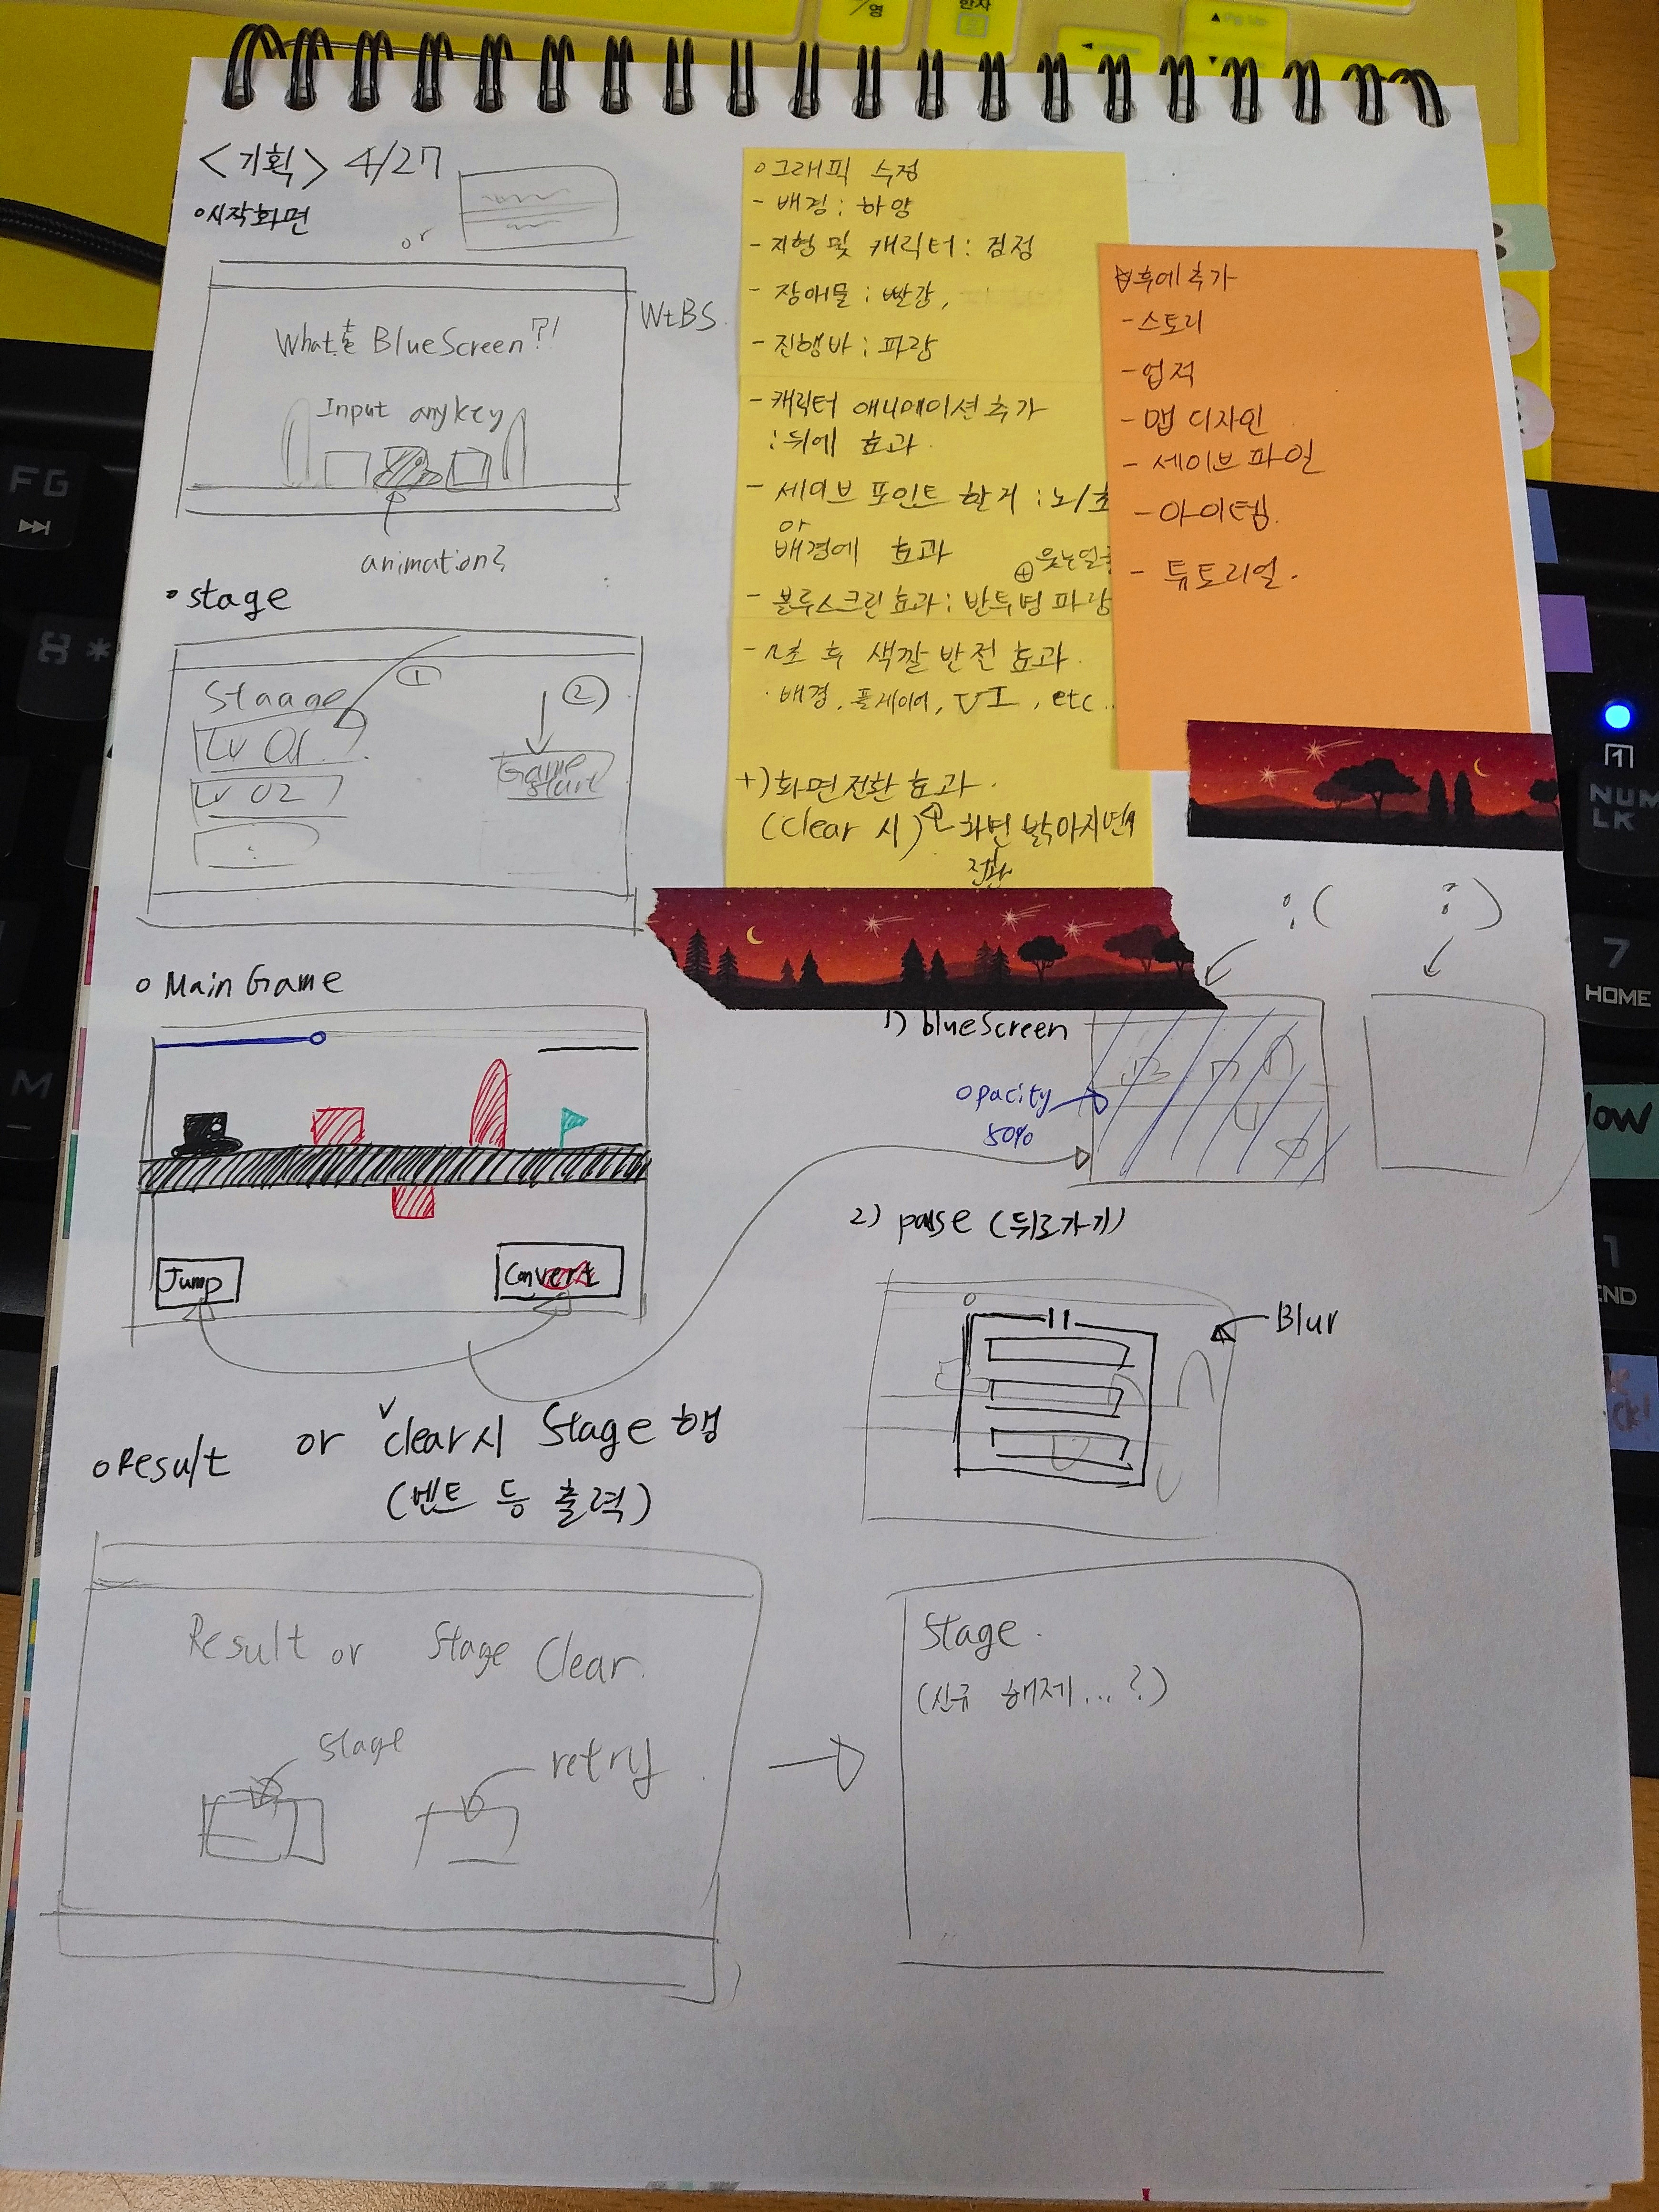 <기획> 4/27
시작화면
or
WtBS.
What BlueScreen?!
Input anykey
animation?
stage
Staage
①
②
Lv 01
Lv 02
Game
Start
Main Game
Jump
Convert
Result or clear시 Stage 행
(멘트 등 출력)
Result or Stage Clear.
stage
retry
Stage.
(신규 해제...?)
그래픽 수정
- 배경 : 하양
- 지형 및 캐릭터 : 검정
- 장애물 : 빨강,
- 진행바 : 파랑
- 캐릭터 애니메이션 추가
: 뒤에 효과.
- 세이브 포인트 한거 : 노/초
or
배경에 효과
⊕ 웃는얼굴
- 블루스크린 효과 : 반투명 파랑
- n초 후 색깔 반전 효과.
· 배경, 플레이어, UI, etc..
+) 화면전환 효과.
(clear 시) 화면 밝아지면서
전환
후에 추가
- 스토리
- 업적
- 맵 디자인
- 세이브 파일
- 아이템.
- 튜토리얼.
:( :)
1) blueScreen
opacity
50%
2) pause (뒤로가기)
Blur
FG
M
/영
한자
NUM
LK
7
HOME
1
END
low